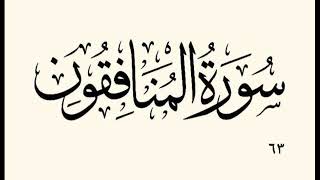 سُورَةُ المُنَافِقُونَ
٦٣